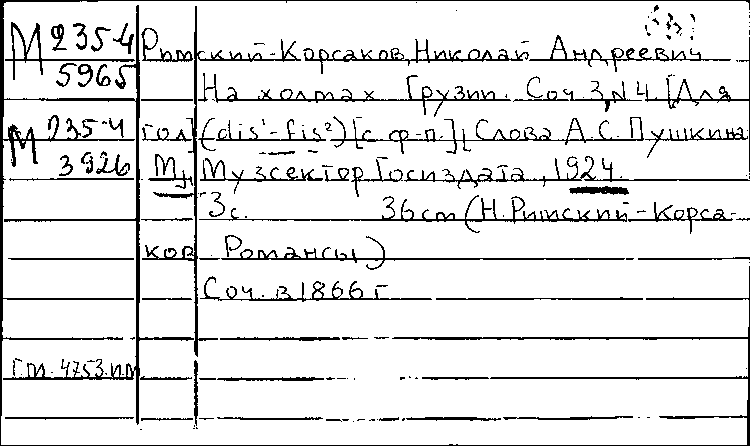 М 235-4
5965
Римский-Корсаков, Николай Андреевич
На холмах Грузии. Соч. 3, N 4. [Для
М 235-4
3926
гол] (dis¹-fis²) [с ф-п.] Слова А.С. Пушкина
М., Музсектор Госиздата, 1924.
3с. 36cm (Н. Римский-Корса-
ков. Романсы)
Соч. в 1866 г